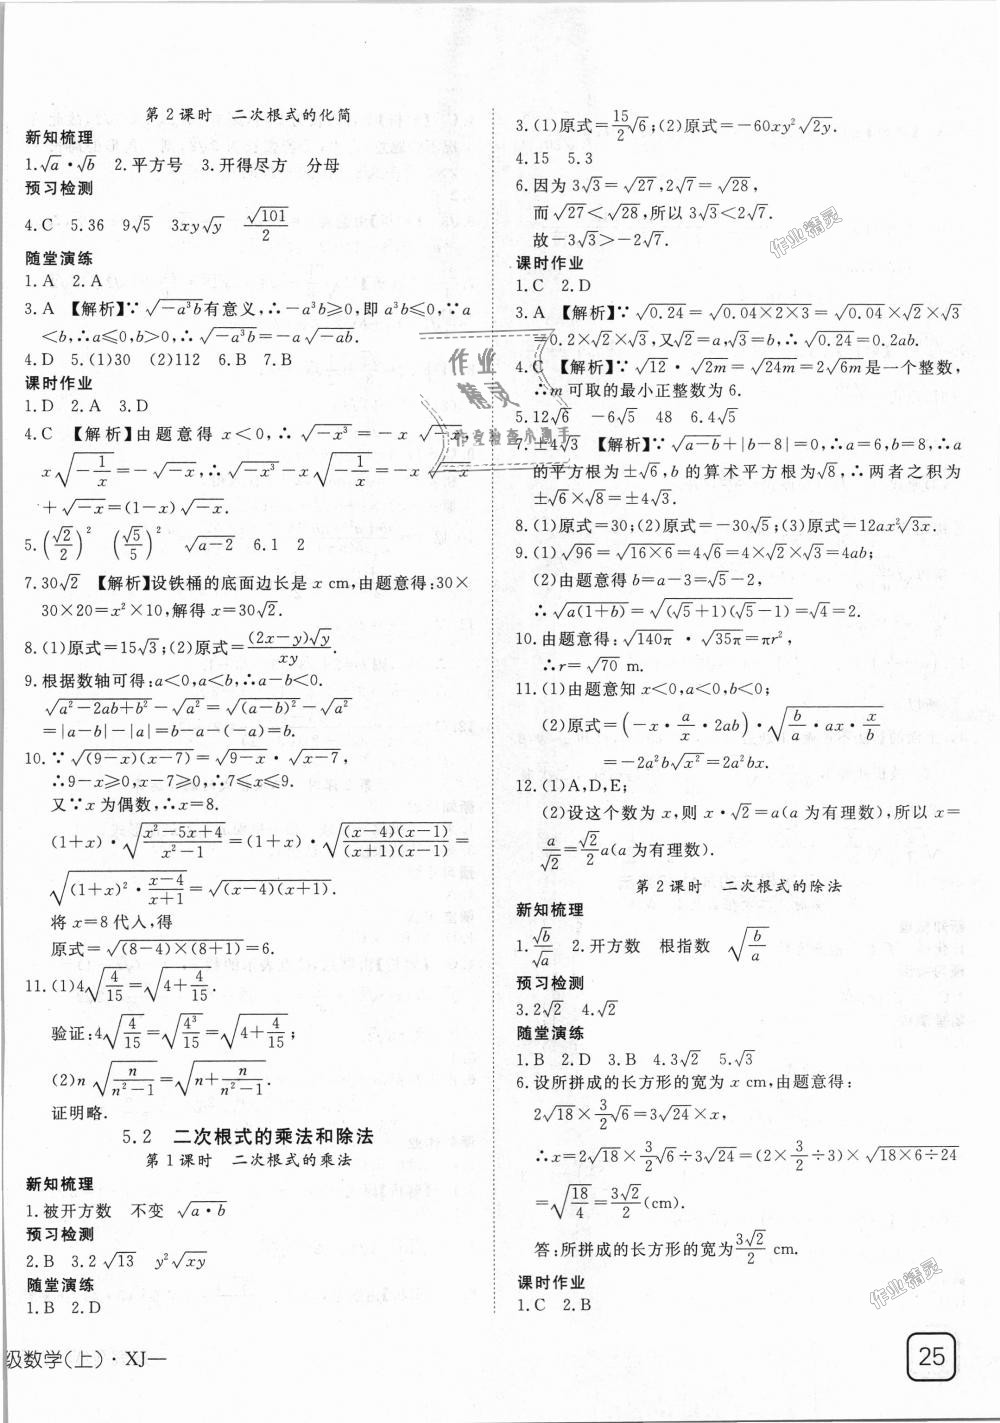 第2课时 二次根式的化简
新知梳理
1.√a·√b 2.平方号 3.开得尽方 分母
预习检测
4.C 5.36 9√5 3xy√y √101/2
随堂演练
1.A 2.A
3.A 【解析】∵√(-a³b)有意义,∴-a³b≥0,即a³b≤0,∵a
<b,∴a≤0,b>0,∴√(-a³b)=-a√(-ab).
4.D 5.(1)30 (2)112 6.B 7.B
课时作业
1.D 2.A 3.D
4.C 【解析】由题意得x<0,∴√(-x³)=-x√(-x),
x√(-1/x)=-√(-x),∴√(-x³)-x√(-1/x)=-x√(-x)
+√(-x)=(1-x)√(-x).
5.(√2/2)² (√5/5)² √(a-2) 6.1 2
7.30√2 【解析】设铁桶的底面边长是x cm,由题意得:30×
30×20=x²×10,解得x=30√2.
8.(1)原式=15√3;(2)原式=(2x-y)√y/xy.
9.根据数轴可得:a<0,a<b,∴a-b<0.
√(a²-2ab+b²)-√a²=√(a-b)²-√a²
=|a-b|-|a|=b-a-(-a)=b.
10.∵√((9-x)(x-7))=√(9-x)·√(x-7),
∴9-x≥0,x-7≥0,∴7≤x≤9.
又∵x为偶数,∴x=8.
(1+x)·√((x²-5x+4)/(x²-1))=(1+x)·√((x-4)(x-1)/((x+1)(x-1)))=
√((1+x)²·(x-4)/(x+1))=√((x-4)(x+1)).
将x=8代入,得
原式=√((8-4)×(8+1))=6.
11.(1)4√(4/15)=√(4+4/15).
验证:4√(4/15)=√(4³/15)=√(4+4/15);
(2)n√(n/(n²-1))=√(n+n/(n²-1)).
证明略.
5.2 二次根式的乘法和除法
第1课时 二次根式的乘法
新知梳理
1.被开方数 不变 √(a·b)
预习检测
2.B 3.2√13 y²√(xy)
随堂演练
1.B 2.D
3.(1)原式=15/2√6;(2)原式=-60xy²√(2y).
4.15 5.3
6.因为3√3=√27,2√7=√28,
而√27<√28,所以3√3<2√7.
故-3√3>-2√7.
课时作业
1.C 2.D
3.A 【解析】∵√0.24=√(0.04×2×3)=√0.04×√2×√3
=0.2×√2×√3,又√2=a,√3=b,∴√0.24=0.2ab.
4.C 【解析】∵√12·√(2m)=√(24m)=2√(6m)是一个整数,
∴m可取的最小正整数为6.
5.12√6 -6√5 48 6.4√5
7.±4√3 【解析】∵√(a-b)+|b-8|=0,∴a=6,b=8,∴a
的平方根为±√6,b的算术平方根为√8,∴两者之积为
±√6×√8=±4√3.
8.(1)原式=30;(2)原式=-30√5;(3)原式=12ax²√(3x).
9.(1)√96=√(16×6)=4√6=4×√2×√3=4ab;
(2)由题意得b=a-3=√5-2,
∴√(a(1+b))=√((√5+1)(√5-1))=√4=2.
10.由题意得:√(140π)·√(35π)=πr²,
∴r=√70 m.
11.(1)由题意知x<0,a<0,b<0;
(2)原式=(-x·a/x·2ab)·√(b/a·ax·x/b)
=-2a²b√x²=2a²bx.
12.(1)A,D,E;
(2)设这个数为x,则x·√2=a(a为有理数),所以x=
a/√2=√2/2a(a为有理数).
第2课时 二次根式的除法
新知梳理
1.√b/√a 2.开方数 根指数 √(b/a)
预习检测
3.2√2 4.√2
随堂演练
1.B 2.D 3.B 4.3√2 5.√3
6.设所拼成的长方形的宽为x cm,由题意得:
2√18×3/2√6=3√24×x,
∴x=2√18×3/2√6÷3√24=(2×3/2÷3)×√(18×6÷24)
=√(18/4)=3√2/2(cm).
答:所拼成的长方形的宽为3√2/2 cm.
课时作业
1.C 2.B
级数学(上)·XJ—
25
作业精灵
作业
精灵
作业精灵